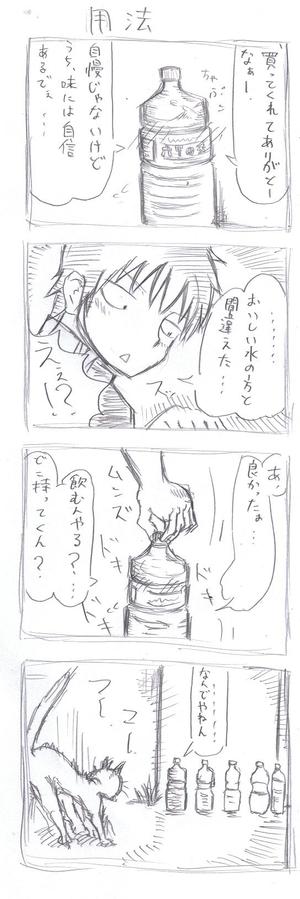 用法
買ってくれてありがとー
なぁー.
ちゃぷン
自慢じゃないけど
うち、味には自信
あるでぇ…
………
おいしい水の方と
間違えた…
スッ
ええ!?
あ,
良かったぁ…
ムンズ
ドキ
ドキ
飲むんやろ?…
どこ持ってくん?
………
なんでやねん
フーッ